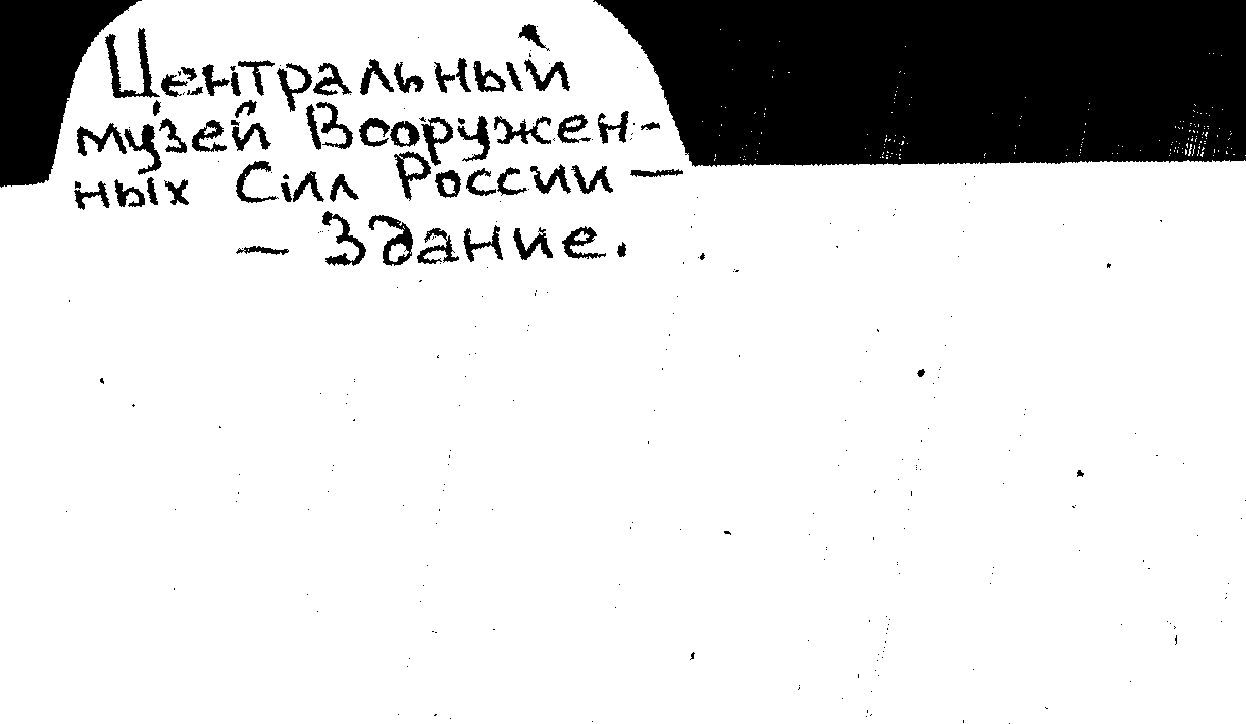 Центральный
музей Вооружен-
ных Сил России —
— Здание.